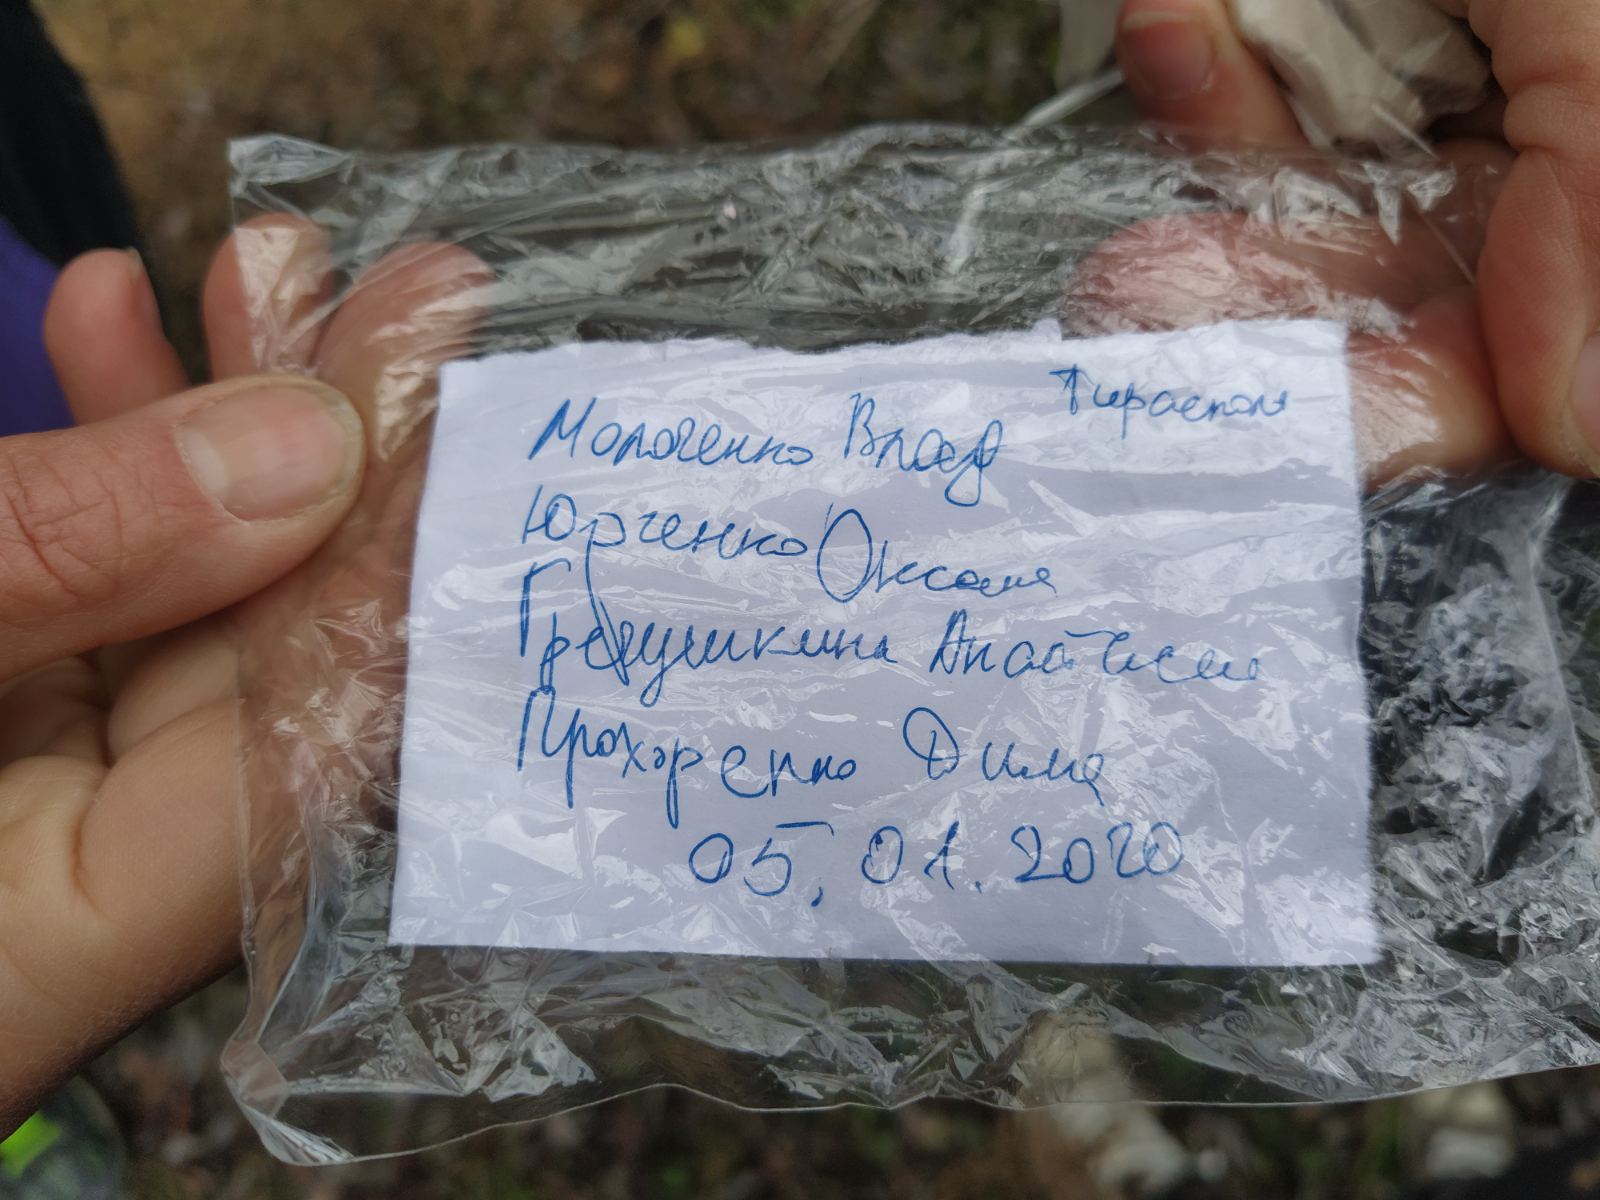 Тирасполь
Молоченко Влад
Юрченко Оксана
Гребушкина Анастасия
Прохоренко Дима
05.01.2020